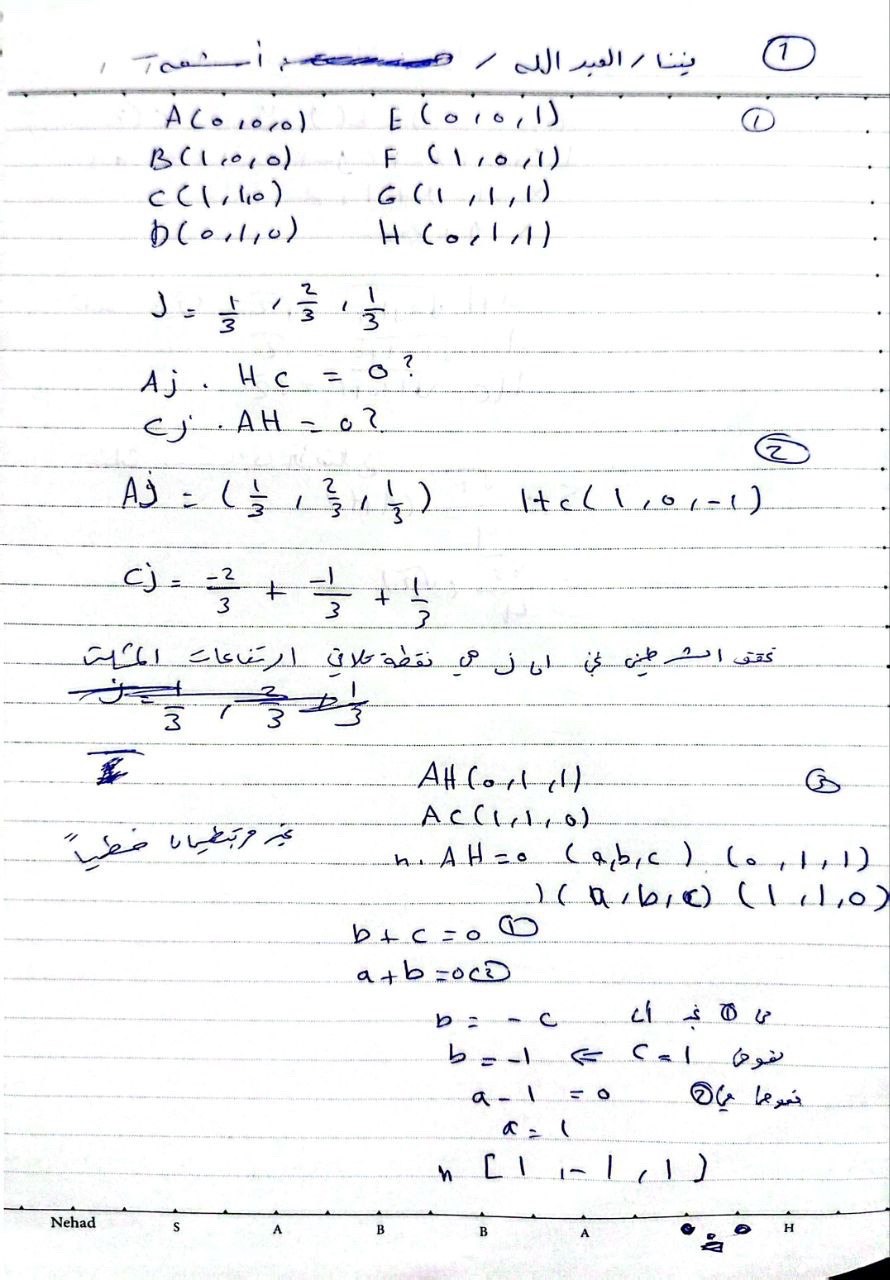 ① يننا / العبد الله / أشعة
A(0,0,0) E(0,0,1) ①
B(1,0,0) F(1,0,1)
C(1,1,0) G(1,1,1)
D(0,1,0) H(0,1,1)
J = 1/3 , 2/3 , 1/3
Aj . HC = 0 ?
Cj . AH = 0 ?
②
Aj = (1/3 , 2/3 , 1/3) Hc(1,0,-1)
Cj = -2/3 + -1/3 + 1/3
تحقق الشرطين نجد ان ز هي نقطة تلاقي ارتفاعات المثلث
J = 1/3 , 2/3 , 1/3
AH(0,1,1) ③
AC(1,1,0)
غير مرتبطان خطياً
n. AH = 0 (a,b,c) (0,1,1)
)(a,b,c) (1,1,0)
b + c = 0 ①
a + b = 0 ②
من ① نجد أن b = - c
نفرض c = 1 ⇐ b = -1
نعوض في ② a - 1 = 0
a = 1
n [1,-1,1]
Nehad S A B B A H